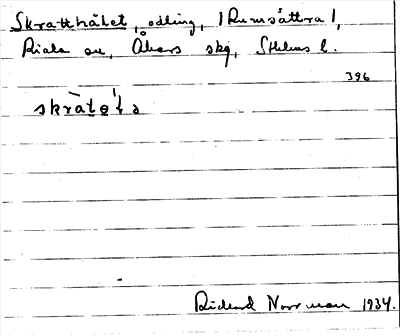 Skratthålet, odling, /Rumsättra/,
Riala sn, Åkers skg, Sthlms l.
396
skràto̱ʹlə
Rickard Norrman 1934.